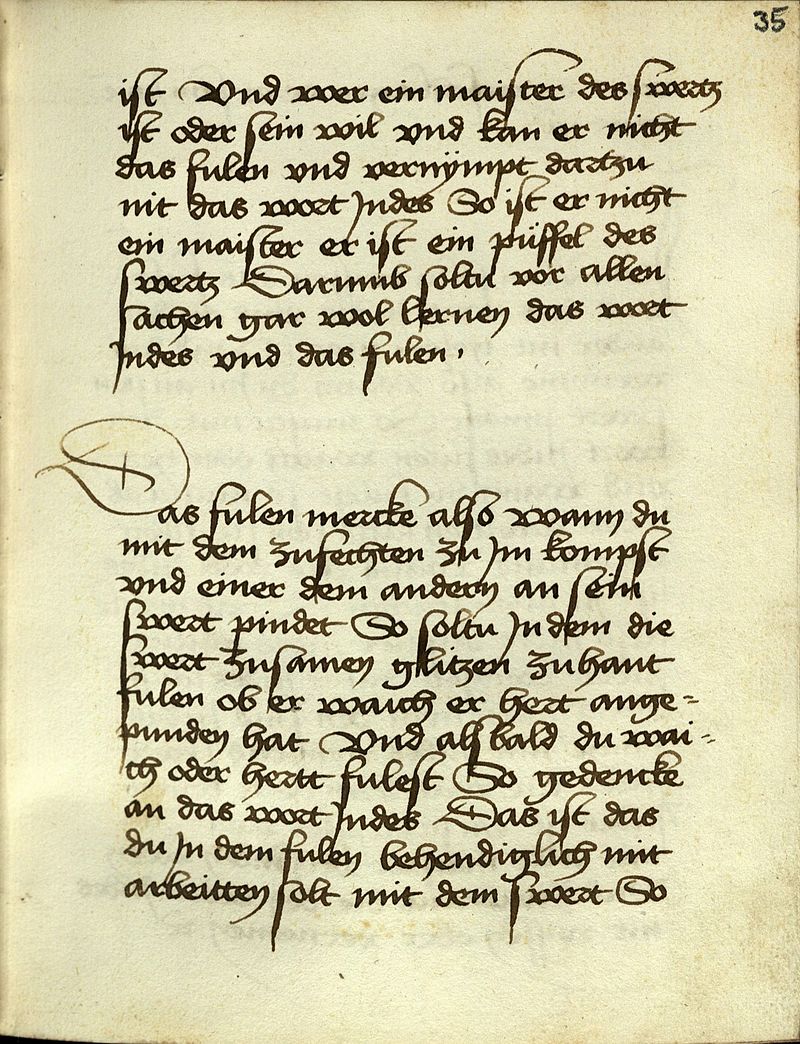 35
ist Vnd wer ein maister des swertz
ist oder sein wil vnd kan er nicht
das fulen vnd vernÿmpt dartzu
nit das wort Jndes So ist er nicht
ein maister er ist ein püffel des
swertz Darumb soltu vor allen
sachen gar wol lernen das wort
Jndes vnd das fulen ·
Das fulen mercke also wann du
mit dem zufechten zu Jm kompst
vnd einer dem andern an sein
swert pindet So soltu Jn dem die
swert zusamen glitzen zuhant
fulen ob er waich er hert ange=
punden hat Vnd alsbald du wai=
ch oder hertt fulest So gedencke
an das wort Jndes Das ist das
du Jn dem fulen behendiglich mit
arbeitten solt mit dem swert So